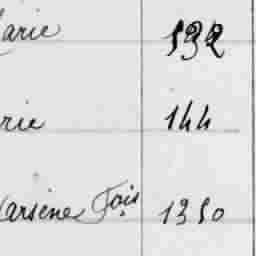 arie 192
rie 144
arsène Fois 1350